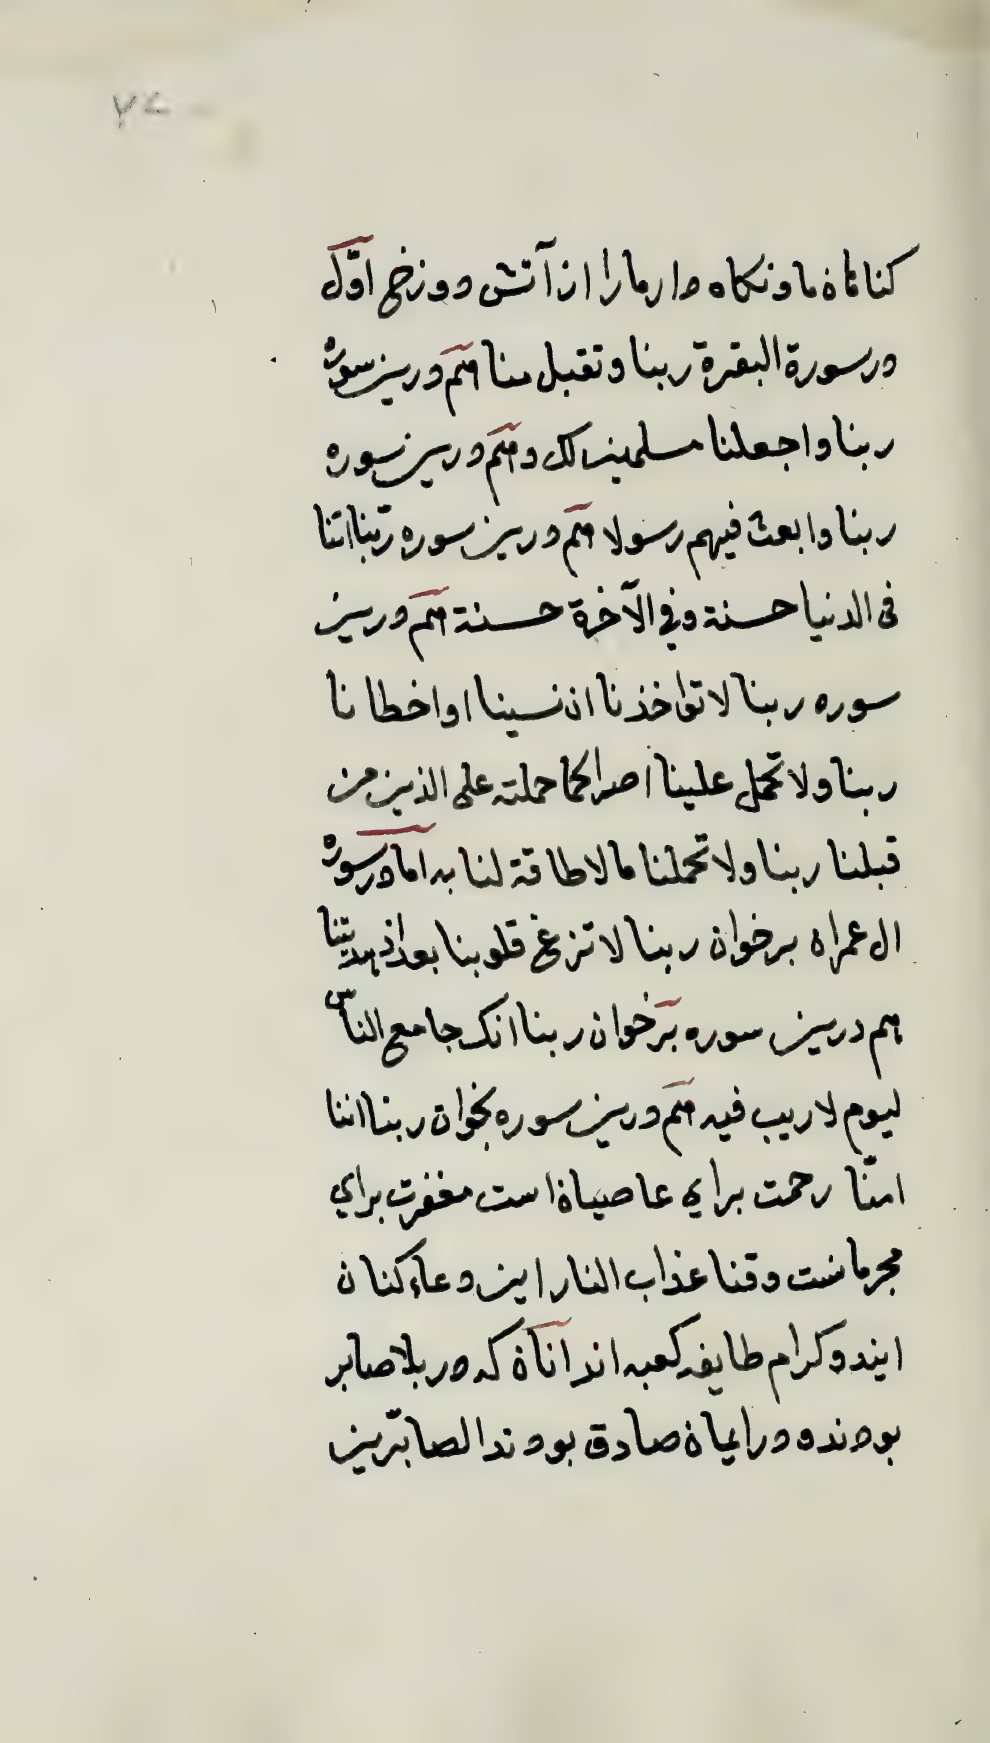 ۷۴
کناهان ما و نکاه دار ما را از آتش دوزخ اوّل
در سورة البقرة ربنا و تقبل منا هم درین سوره
ربنا واجعلنا مسلمین لک و هم درین سوره
ربنا وابعث فیهم رسولا هم درین سوره ربّنا اتنا
فی الدنیا حسنة وفی الآخرة حسنة هم درین
سوره ربنا لا تؤاخذنا ان نسینا او اخطانا
ربنا ولا تحمل علینا اصرا کما حملته علی الذین من
قبلنا ربنا ولا تحملنا ما لا طاقة لنا به اما در سوره
ال عمران برخوان ربنا لا تزغ قلوبنا بعد اذ هدیتنا
هم درین سوره برخوان ربنا انک جامع الناس
لیوم لا ریب فیه هم درین سوره بخوان ربنا اننا
امنّا رحمت برای عاصیان است مغفرت برای
مجرمانست وقنا عذاب النار این دعاء کنان
ایند و کرام طایفه کعبه اند انان که در بلا صابر
بودند و در ایمان صادق بودند الصابرین